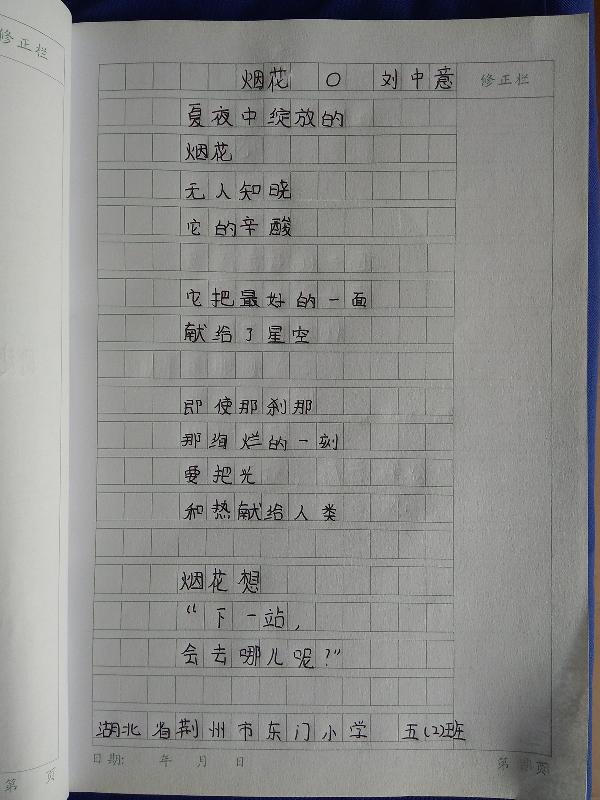 修正栏
烟花 〇 刘中意 修正栏
夏夜中绽放的
烟花
无人知晓
它的辛酸
它把最好的一面
献给了星空
即使那刹那
那绚烂的一刻
要把光
和热献给人类
烟花想
“下一站,
会去哪儿呢?”
湖北省荆州市东门小学 五(2)班
日期: 年 月 日 第 页
第 页